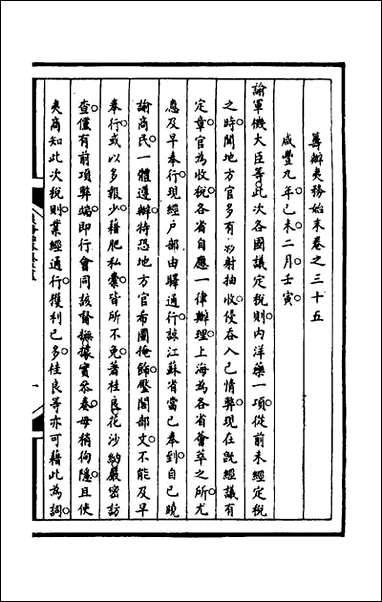 籌辦夷務始末卷之三十五
咸豐九年己未二月壬寅
諭軍機大臣等此次各國議定稅則內洋藥一項從前未經定稅
之時聞地方官多有私射抽收侵吞入己情弊現在既經議有
定章官為收稅各省自應一律辦理上海為各省薈萃之所尤
應及早奉行現經戶部由驛通行諒江蘇省當已奉到自已曉
諭商民一體遵辦特恐地方官希圖掩飾壓閣部文不能及早
奉行或以多報少藉肥私囊皆所不免著桂良花沙納嚴密訪
查僅有前項弊端即行會同該督撫據實參奏毋稍徇隱且使
夷商知此次稅則業經通行獲利已多桂良等亦可藉此為詞